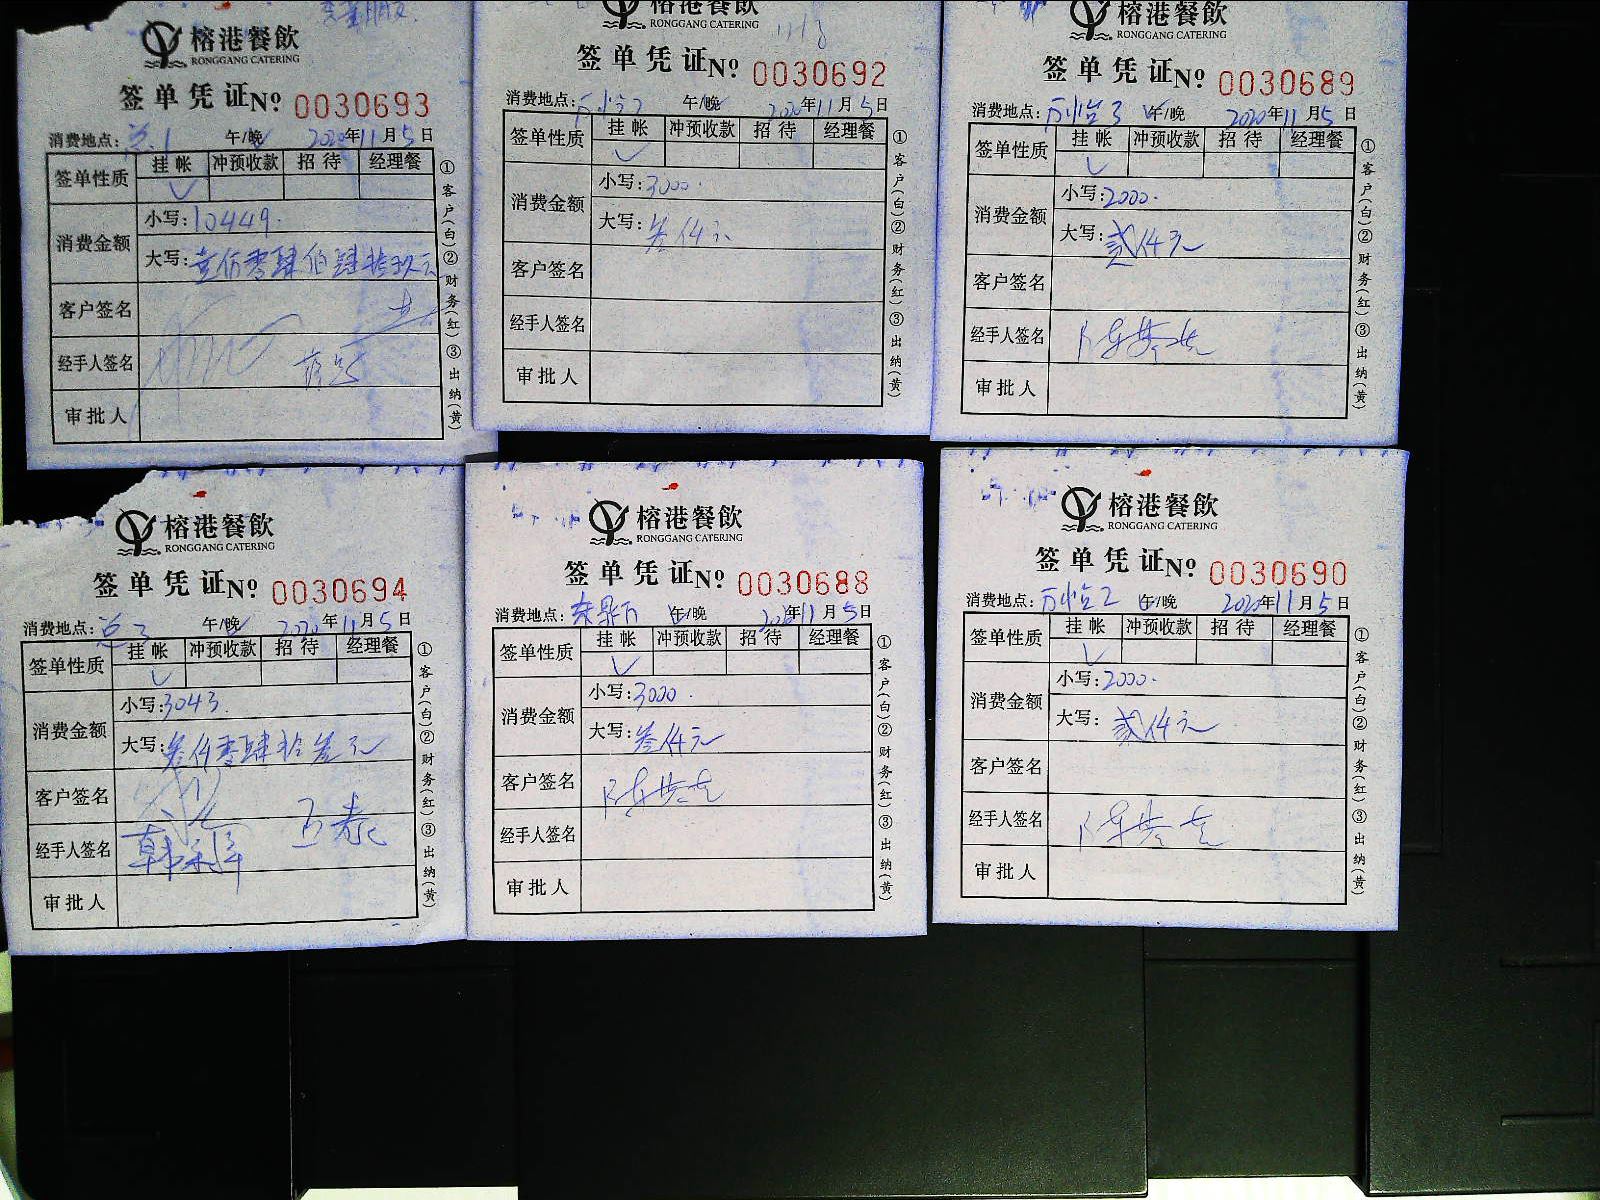 榕港餐飲
RONGGANG CATERING
签单凭证 № 0030693
消费地点: 总1 午/晚 2020年11月5日
签单性质 挂帐 冲预收款 招待 经理餐
消费金额 小写:10449.
大写:壹仟零肆佰肆拾玖元
客户签名
经手人签名
审批人
①客户(白)②财务(红)③出纳(黄)
榕港餐飲
RONGGANG CATERING
签单凭证 № 0030692
消费地点: 午/晚 2020年11月5日
签单性质 挂帐 冲预收款 招待 经理餐
消费金额 小写:3000.
大写:叁仟元
客户签名
经手人签名
审批人
①客户(白)②财务(红)③出纳(黄)
榕港餐飲
RONGGANG CATERING
签单凭证 № 0030689
消费地点: 万怡3 午/晚 2020年11月5日
签单性质 挂帐 冲预收款 招待 经理餐
消费金额 小写:2000.
大写:贰仟元
客户签名
经手人签名
审批人
①客户(白)②财务(红)③出纳(黄)
榕港餐飲
RONGGANG CATERING
签单凭证 № 0030694
消费地点: 总3 午/晚 2020年11月5日
签单性质 挂帐 冲预收款 招待 经理餐
消费金额 小写:3043.
大写:叁仟零肆拾叁元
客户签名
经手人签名
审批人
①客户(白)②财务(红)③出纳(黄)
榕港餐飲
RONGGANG CATERING
签单凭证 № 0030688
消费地点: 午/晚 2020年11月5日
签单性质 挂帐 冲预收款 招待 经理餐
消费金额 小写:3000.
大写:叁仟元
客户签名
经手人签名
审批人
①客户(白)②财务(红)③出纳(黄)
榕港餐飲
RONGGANG CATERING
签单凭证 № 0030690
消费地点: 万怡2 午/晚 2020年11月5日
签单性质 挂帐 冲预收款 招待 经理餐
消费金额 小写:2000.
大写:贰仟元
客户签名
经手人签名
审批人
①客户(白)②财务(红)③出纳(黄)